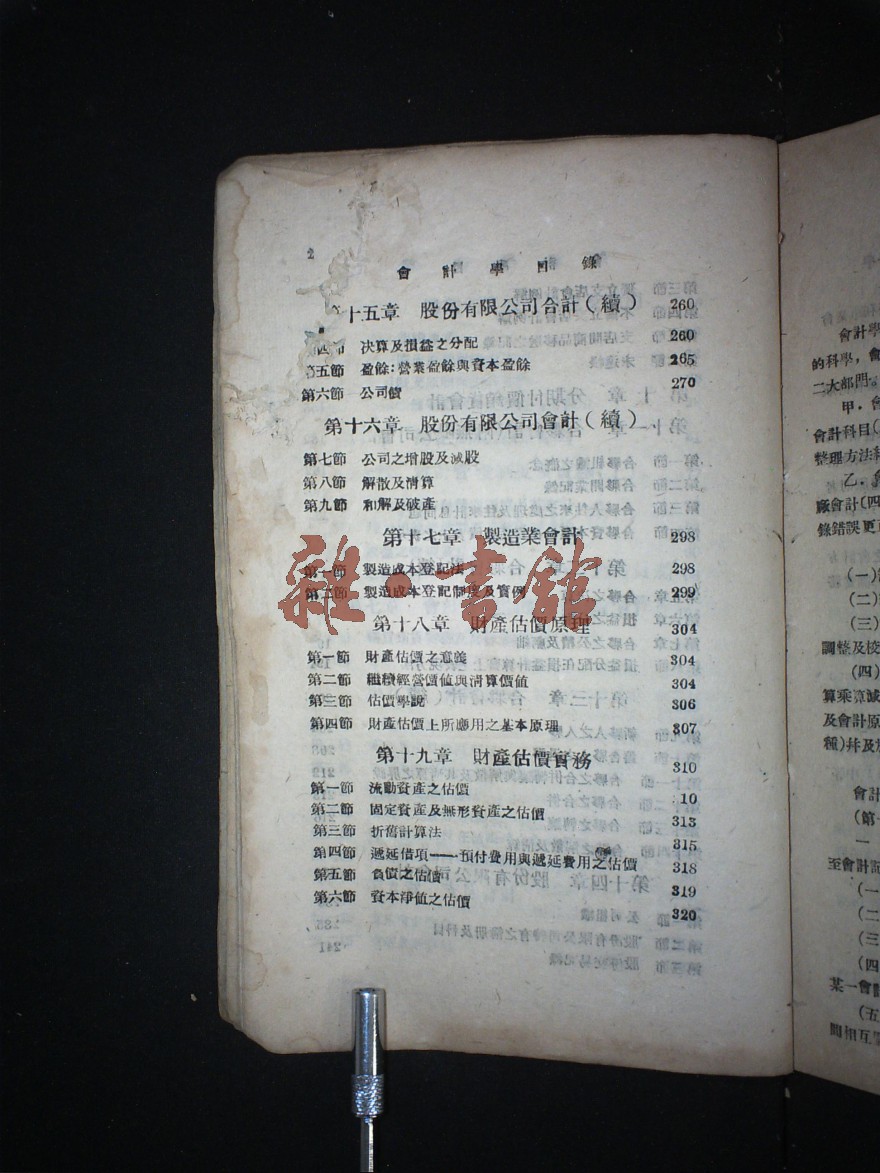 2
會計學目錄
十五章 股份有限公司合計(續) 260
四節 決算及損益之分配 260
第五節 盈餘:營業盈餘與資本盈餘 265
第六節 公司債 270
第十六章 股份有限公司會計(續)
第七節 公司之增股及減股
第八節 解散及清算
第九節 和解及破產
第十七章 製造業會計 298
第一節 製造成本登記法 298
第二節 製造成本登記制度及實例 299
第十八章 財產估價原理 304
第一節 財產估價之意義 304
第二節 繼續經營價值與清算價值 304
第三節 估價學說 306
第四節 財產估價上所應用之基本原理 307
第十九章 財產估價實務 310
第一節 流動資產之估價 10
第二節 固定資產及無形資產之估價 313
第三節 折舊計算法 315
第四節 遞延借項——預付費用與遞延費用之估價 318
第五節 負債之估價 319
第六節 資本淨值之估價 320
雜·書館
會計學
的科學,會
二大部門:
甲.會
會計科目(
整理方法
乙.
廠會計(四
錄錯誤更
(一)
(二)
(三)
調整及校
(四)
算乘算減
及會計原
種)幷及
會計
(第一
一
至會計記
(一
(二
(三
(四
某一會計
(五
間相互